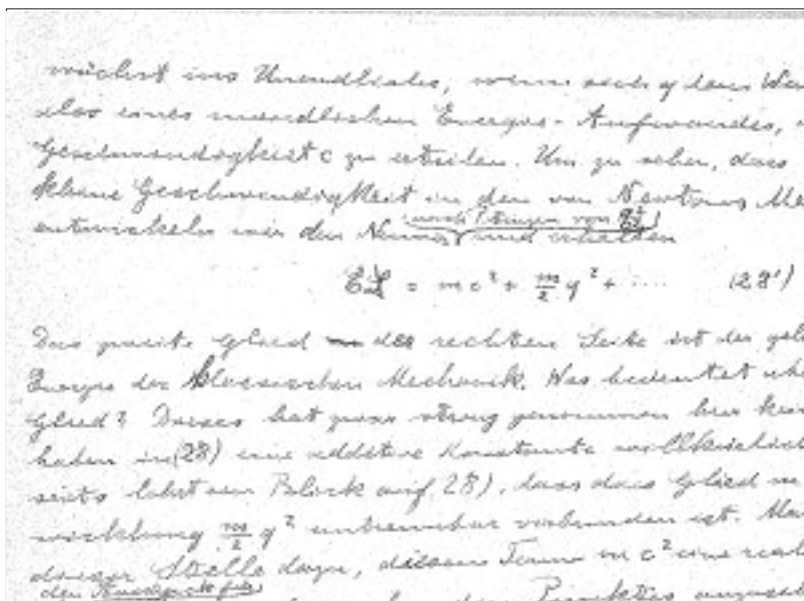 wächst ins Unendliche, wenn sich q dem Wer
also eines unendlichen Energie-Aufwandes, u
Geschwindigkeit c zu erteilen. Um zu sehen, dass
kleine Geschwindigkeit in den von Newtons Me
nach Potenzen von
entwickeln wir den Nenner und erhalten
= mc² + m/2 q² + ···· (28')
Das zweite Glied der rechten Seite ist der gel
Energie der klassischen Mechanik. Was bedeutet abe
Glied? Dieses hat zwar streng genommen hier kei
haben in (28) eine additive Konstante willkürlich
seits lehrt ein Blick auf 28), dass das Glied m
wicklung m/2 q² untrennbar verbunden ist. Ma
dieser Stelle dazu, diesem Term mc² eine real
den Ausdruck für
des Punktes anzuse